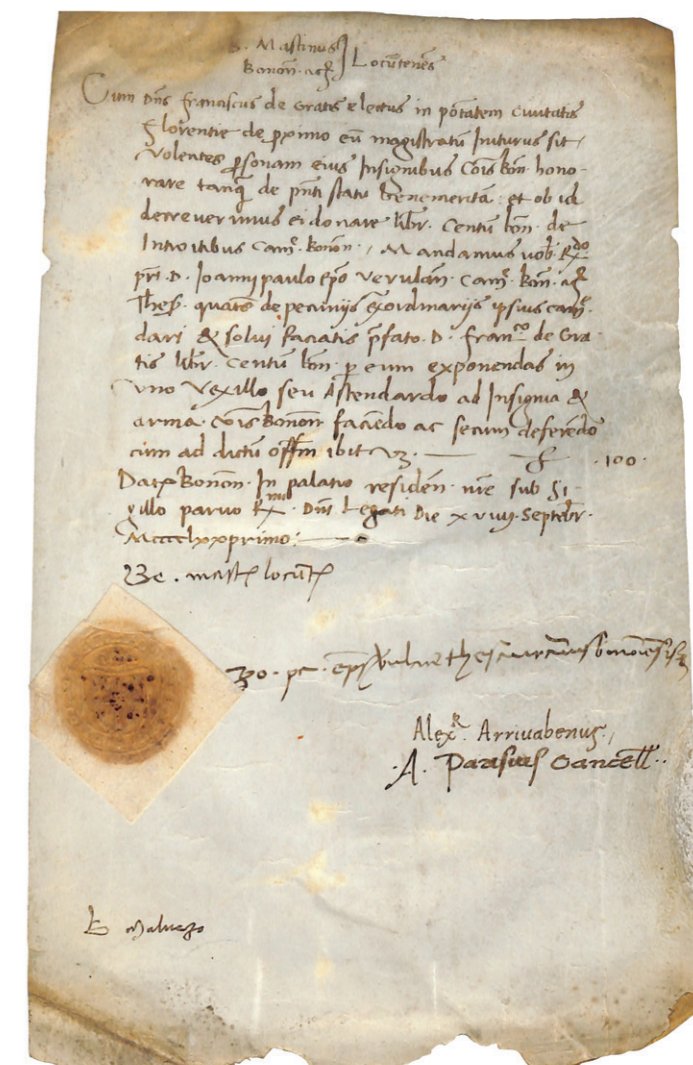 B. Mastinus
Bonon. ac̃. Locũtenẽs
Cum Dñs franciscus de Gratis electus in põtatem Ciuitatis
Florentie de proximo eũ magistratũ Initurus sit,
Volentes p̱sonam eius Insignibus Cõis bon. hono-
rare tanq̃ de pñti statu benemeritã: et ob id
decreuerimus ei donare libr. Centũ bon. de
Introitibus Cam̃. bonon., Mandamus uob. R.do
pr̃i. D. Joannj paulo ep̃o Verulañ. Cam̃. bon. ac̃.
Thes̃. quateñ de pecunijs exordinarijs ipsius cam̃.
dari & solui faciatis p̃fato. D. Fran.co de Gra-
tis libr. Centũ bon. p̱ eum exponendas in
Vno Vexillo seu Astendardo ad Insignia &
arma. Cõis Bonoñ faciẽdo ac secum deferẽdo
cum ad dictũ off̃m ibit Vz. — £ .100.
Dat̃ Bonoñ. In palatio residen. nr̃e sub Si-
gillo paruo R.mi Dñi Legati Die xviiij. Septebr.
Mcccclxxprimo:
Be. mast. locũt.
Io. pa. ep̃s
Alex.r Arriuabenus,
.A. Parisius Cancell..
B Maluezo